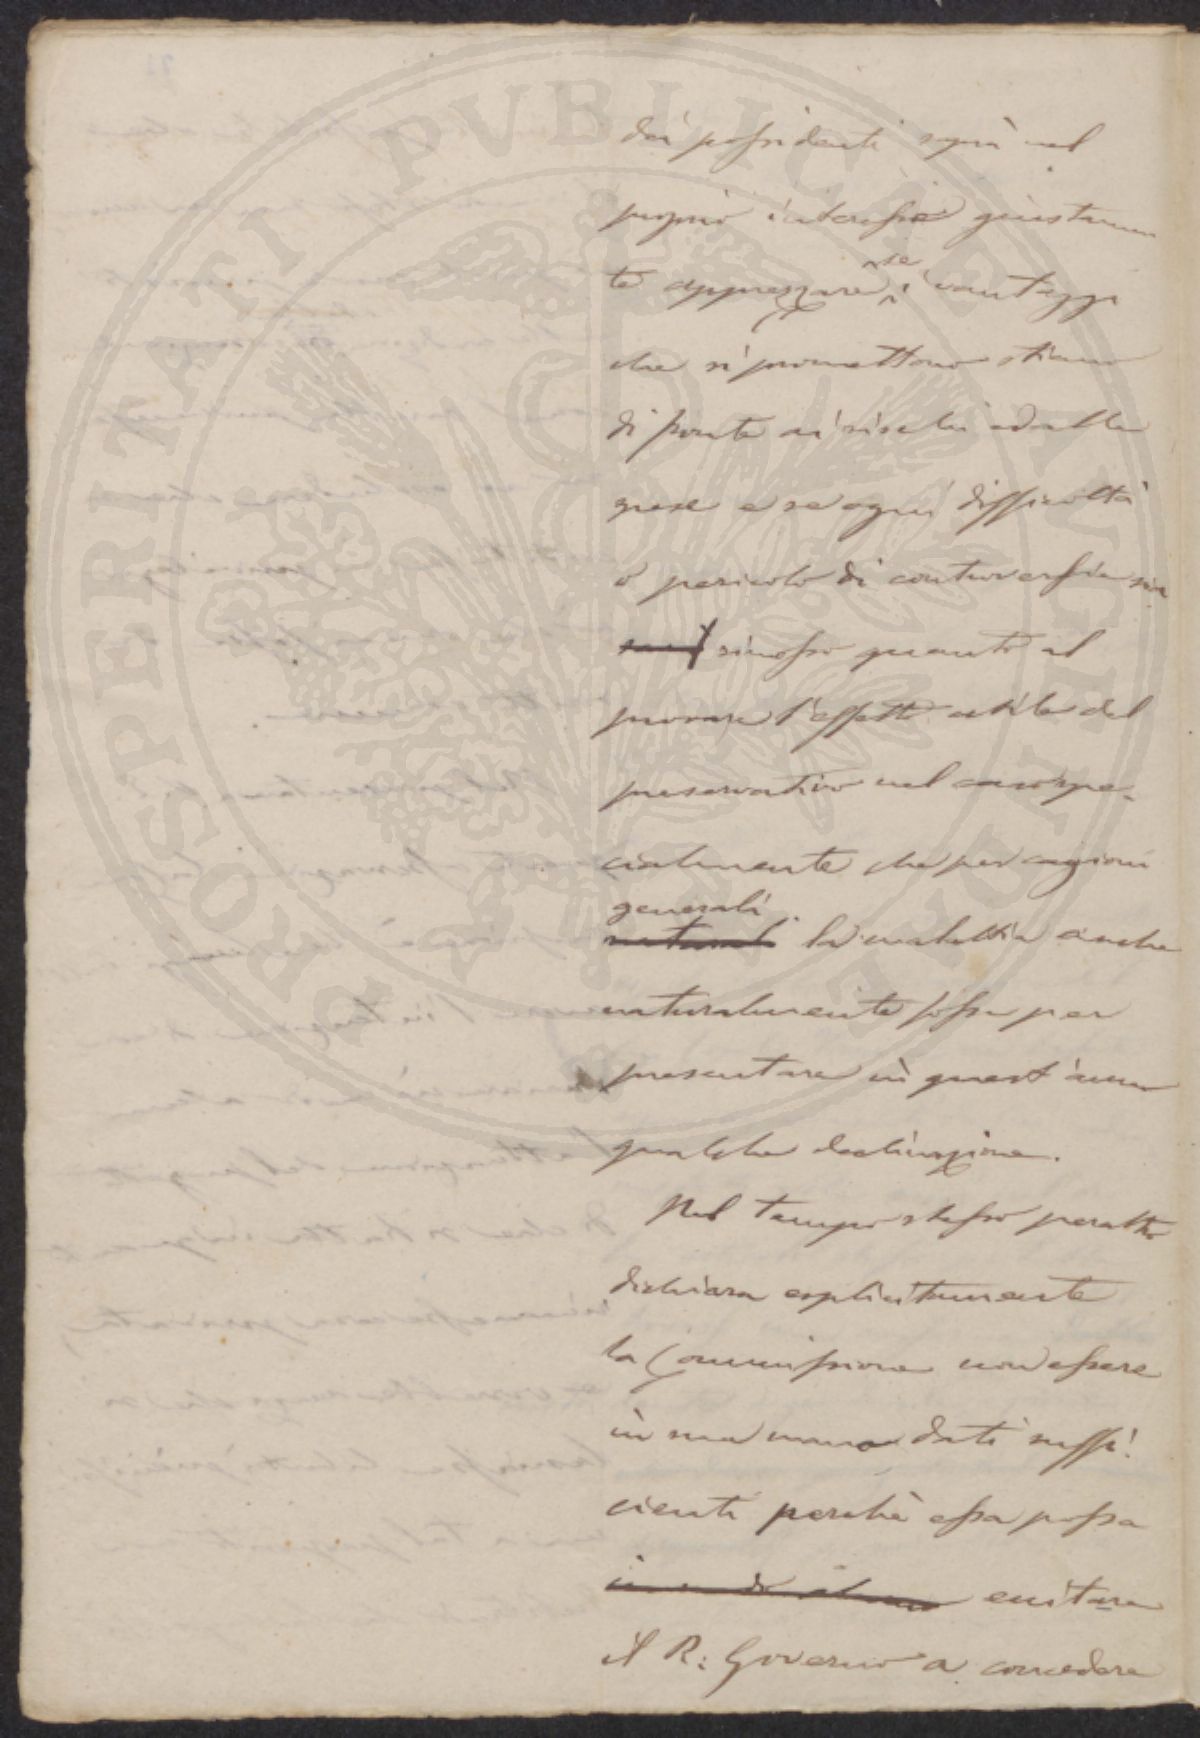 dei possidenti saprà nel
proprio interesse giustamen
te apprezzare se i vantaggi
che si promettono stieno
di fronte ai rischi ed alle
spese e se ogni difficoltà
o pericolo di controversia sia
rimosso quanto al
provare l'effetto utile del
preservativo nel caso spe-
cialmente che per cagioni
generali la malattia anche
naturalmente fosse per
presentare in quest'anno
qualche declinazione.
Nel tempo stesso peraltro
dichiara esplicitamente
la Commissione non essere
in sua mano dati suffi-
cienti perchè essa possa
eccitare
il R: Governo a concedere
PROSPERITATI PVBLICAE AVGENDAE